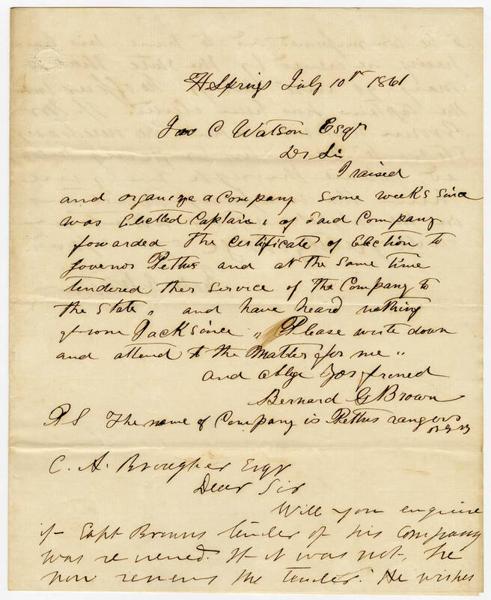 H Springs July 10th 1861
Jas C Watson Esqr
Dr Sir
I raised
and organize a Company Some weeks Since
was Elected Captain, of Said Company
forwarded The Certificate of Election to
Governor Pettus and at the Same time
tendered ther Service of the Company to
the State, and have heard nothing
from Jack Since " Please write down
and attend to the Matter for me "
and oblge your friend
Bernard G Brown
PS The name of Company is Pettus rangers
C. A. Brougher Esqr
Dear Sir
Will you enquire
if Capt Browns tender of his Company
was received. If it was not, he
now renews the tender. He wishes